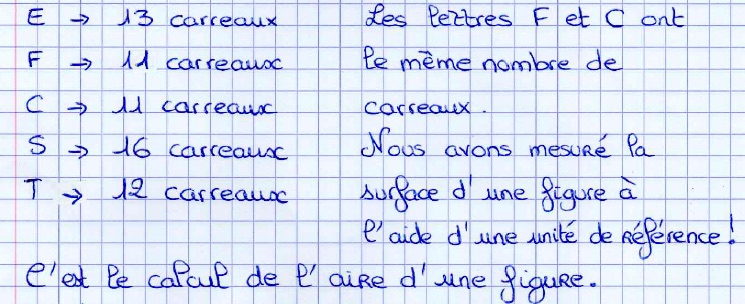 E → 13 carreaux
F → 11 carreaux
C → 11 carreaux
S → 16 carreaux
T → 12 carreaux
Les lettres F et C ont
le même nombre de
carreaux.
Nous avons mesuré la
surface d'une figure à
l'aide d'une unité de référence !
C'est le calcul de l'aire d'une figure.